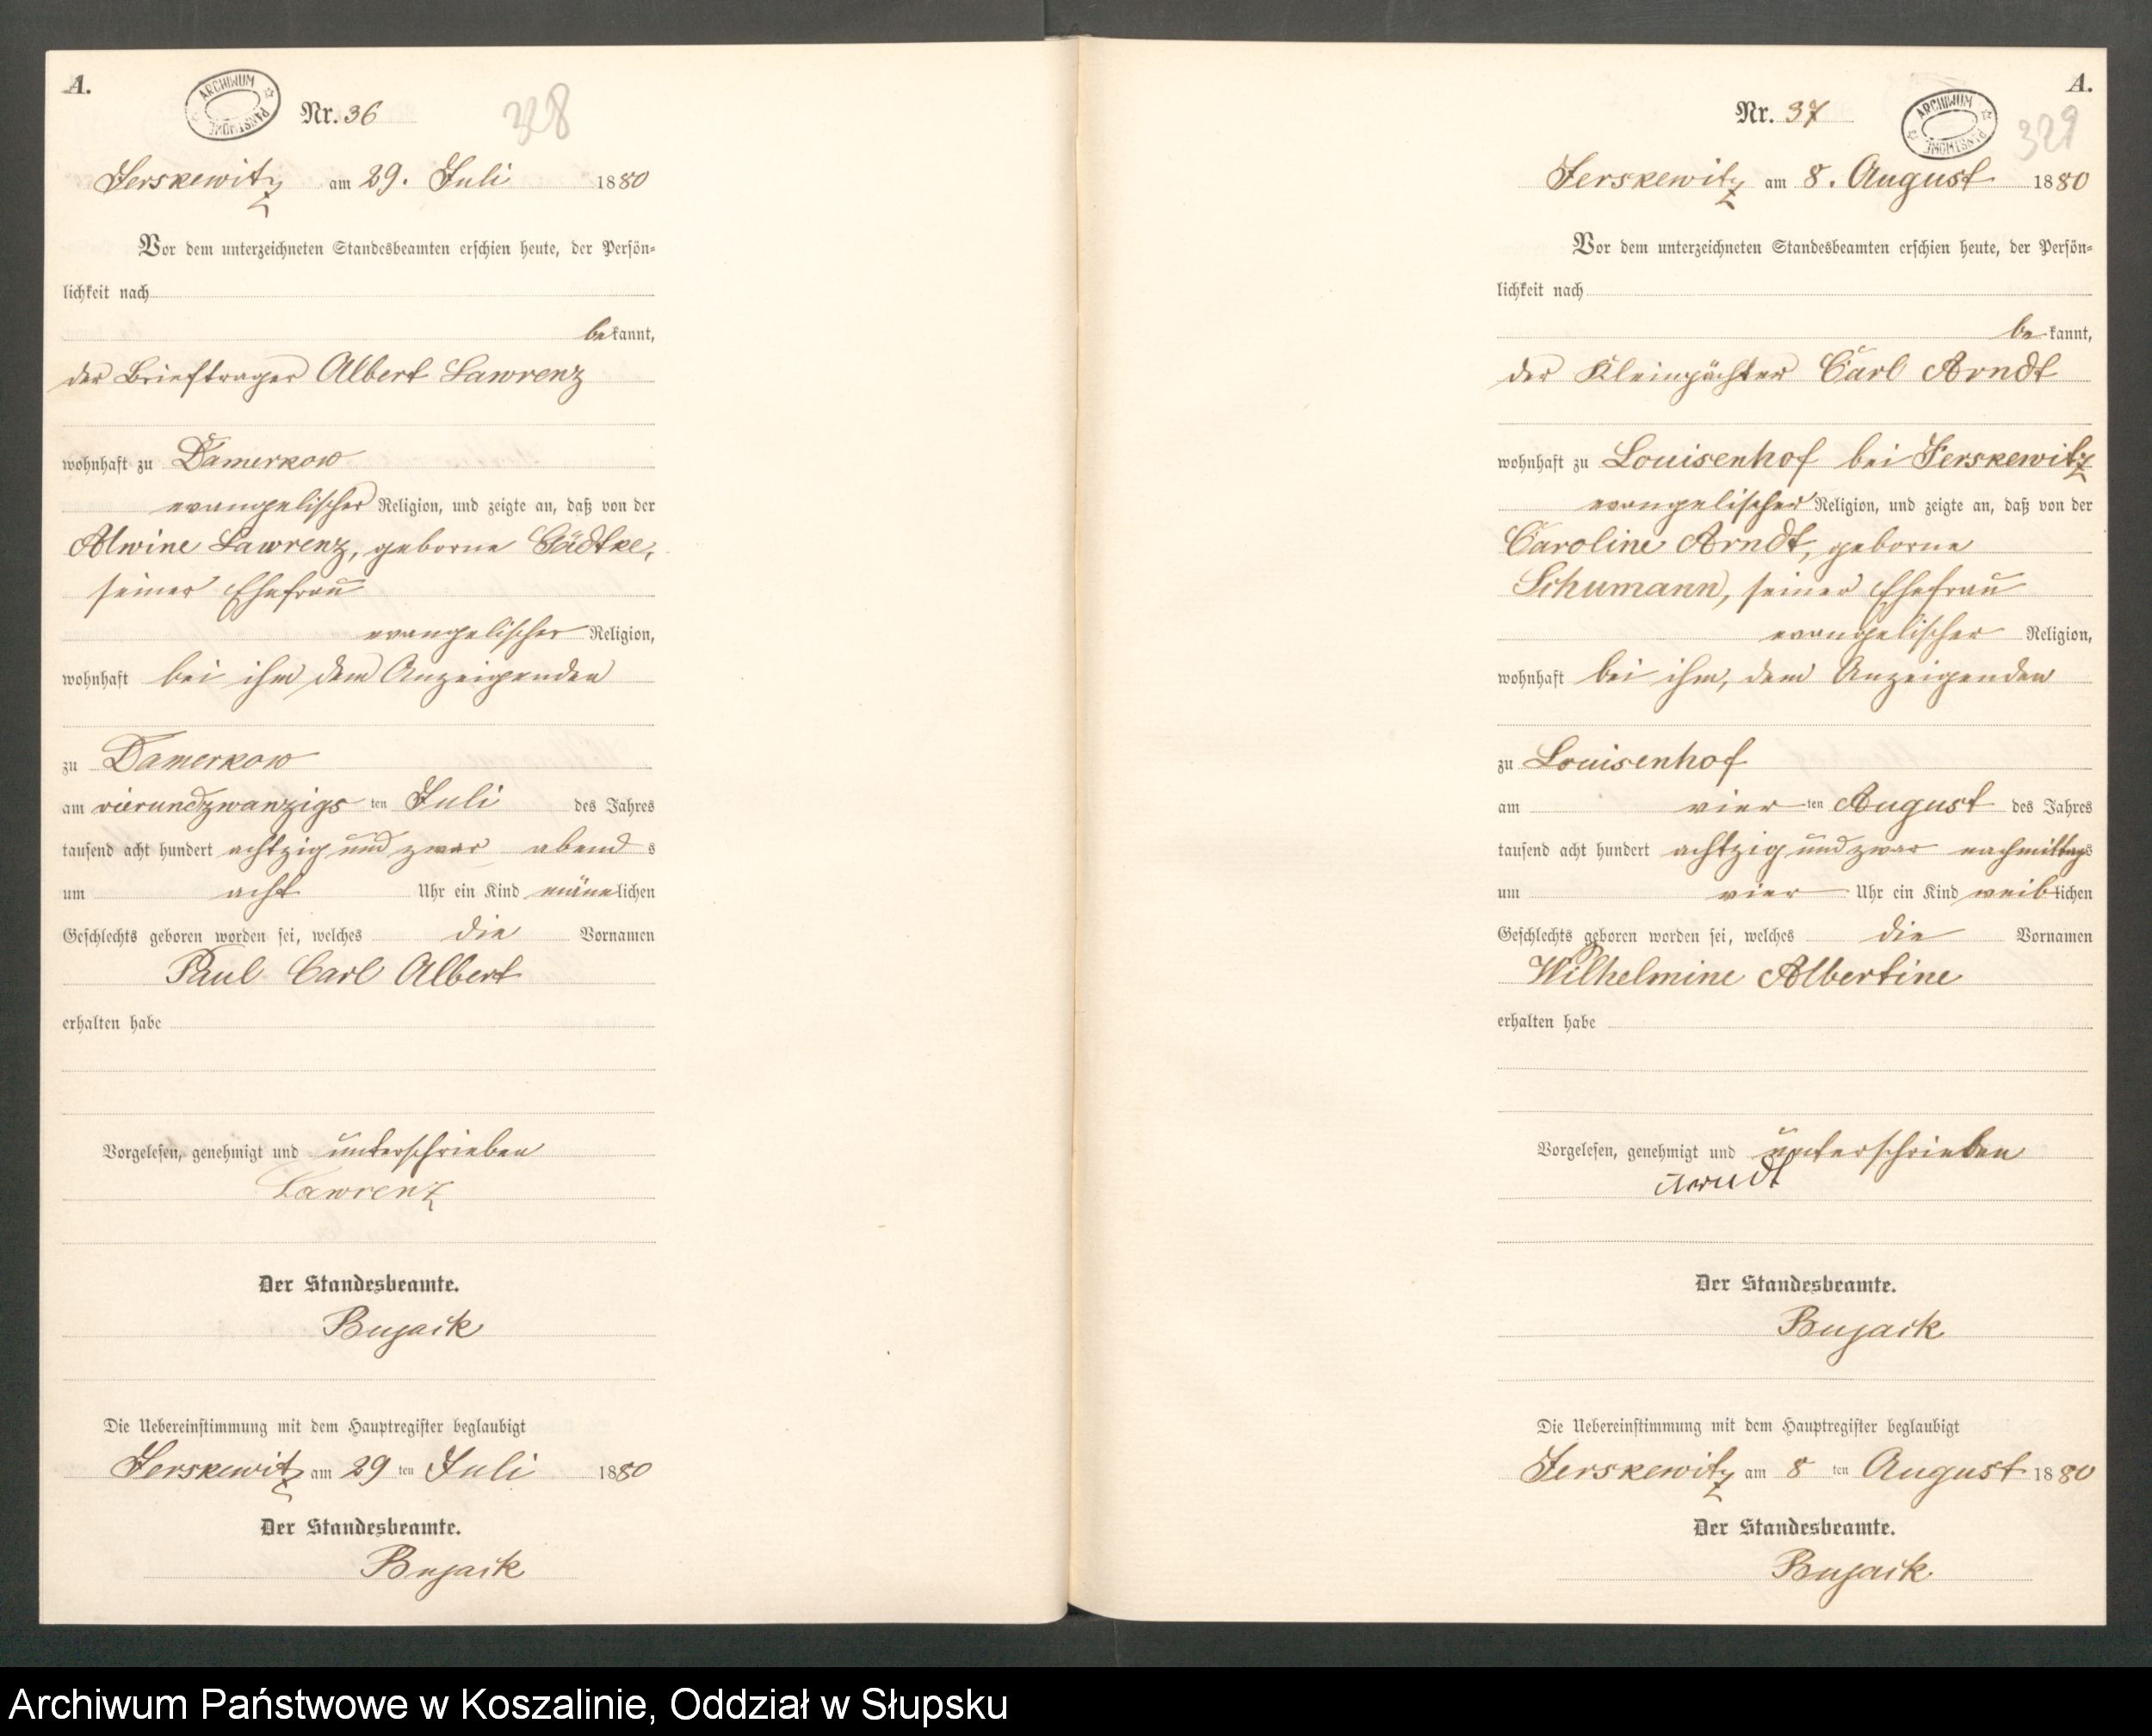 A.
ARCHIWUM PAŃSTWOWE
Nr. 36
328
Jerskewitz am 29. Juli 1880
Vor dem unterzeichneten Standesbeamten erschien heute, der Persön-
lichkeit nach
bekannt,
der Briefträger Albert Lawrenz
wohnhaft zu Damerkow
evangelischer Religion, und zeigte an, daß von der
Alwine Lawrenz, geborne Gädtke,
seiner Ehefrau
evangelischer Religion,
wohnhaft bei ihm dem Anzeigenden
zu Damerkow
am vierundzwanzigsten Juli des Jahres
tausend acht hundert achtzig und zwar abends
um acht Uhr ein Kind männlichen
Geschlechts geboren worden sei, welches die Vornamen
Paul Carl Albert
erhalten habe
Vorgelesen, genehmigt und unterschrieben
Lawrenz
Der Standesbeamte.
Bujack
Die Uebereinstimmung mit dem Hauptregister beglaubigt
Jerskewitz am 29 ten Juli 1880
Der Standesbeamte.
Bujack
A.
ARCHIWUM PAŃSTWOWE
Nr. 37
329
Jerskewitz am 8. August 1880
Vor dem unterzeichneten Standesbeamten erschien heute, der Persön-
lichkeit nach
bekannt,
der Kleinpächter Carl Arndt
wohnhaft zu Louisenhof bei Jerskewitz
evangelischer Religion, und zeigte an, daß von der
Caroline Arndt, geborne
Schumann, seiner Ehefrau
evangelischer Religion,
wohnhaft bei ihm, dem Anzeigenden
zu Louisenhof
am vierten August des Jahres
tausend acht hundert achtzig und zwar nachmittags
um vier Uhr ein Kind weiblichen
Geschlechts geboren worden sei, welches die Vornamen
Wilhelmine Albertine
erhalten habe
Vorgelesen, genehmigt und unterschrieben
Arndt
Der Standesbeamte.
Bujack
Die Uebereinstimmung mit dem Hauptregister beglaubigt
Jerskewitz am 8 ten August 1880
Der Standesbeamte.
Bujack
Archiwum Państwowe w Koszalinie, Oddział w Słupsku